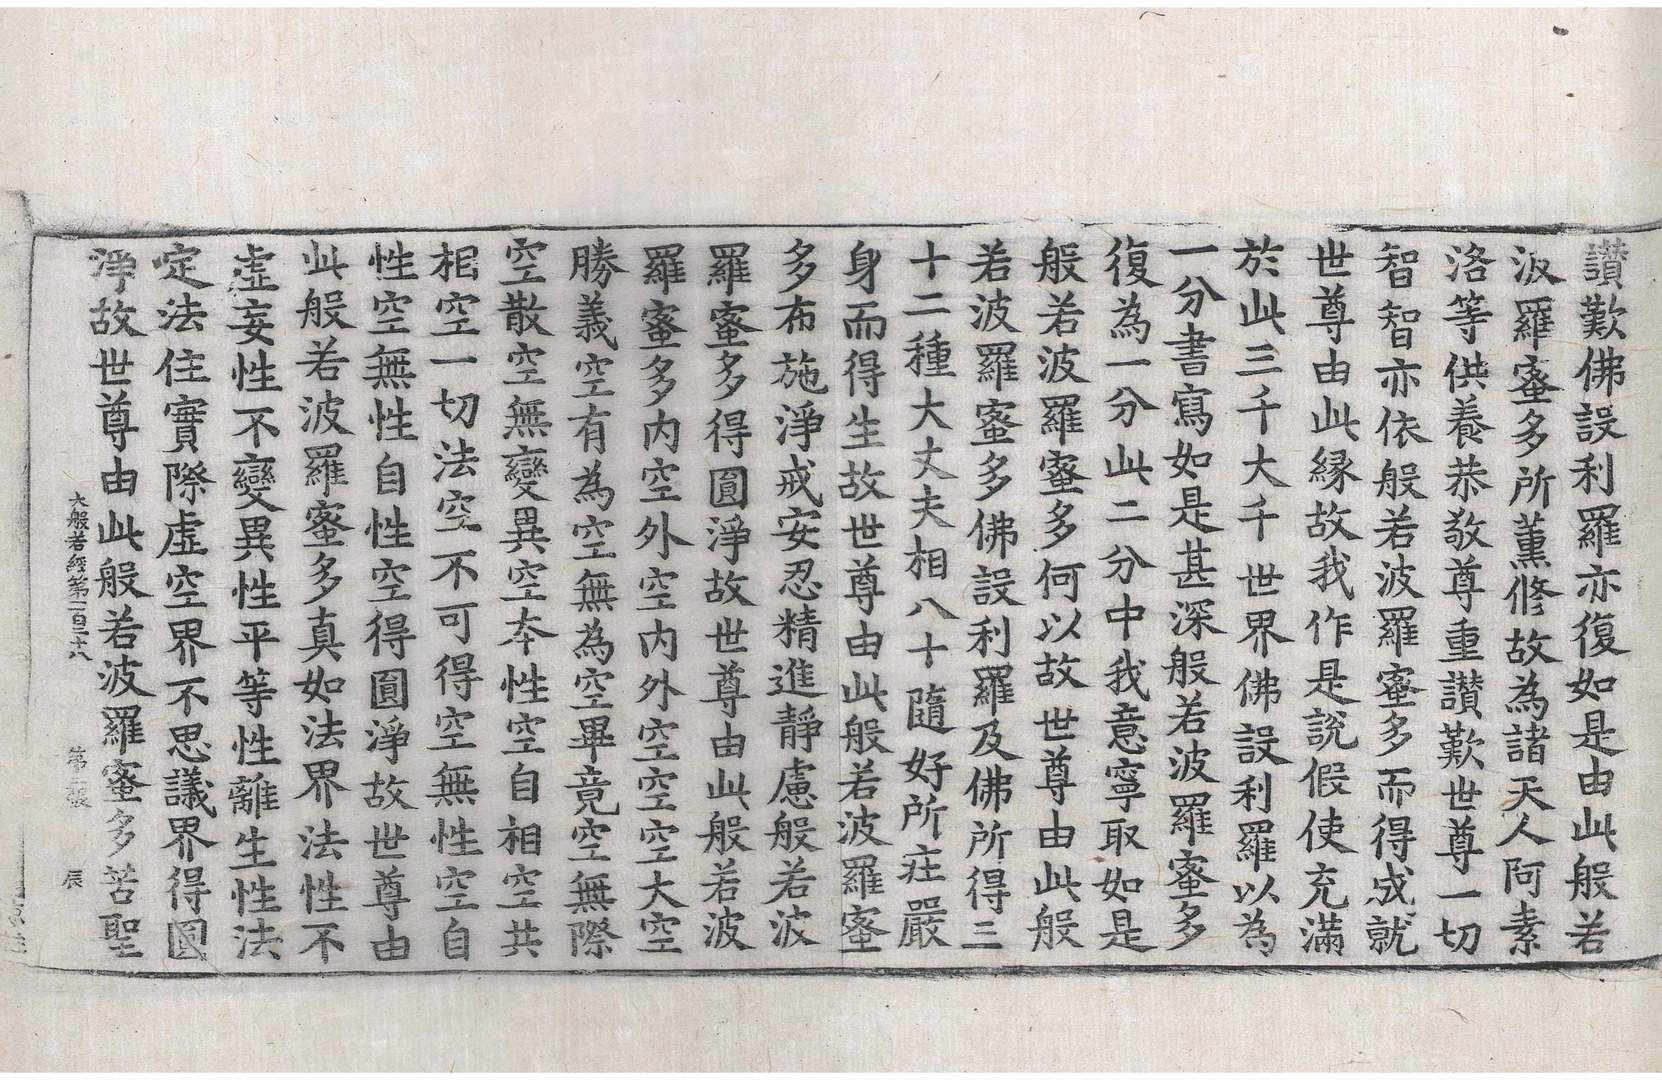 讃歎佛設利羅亦復如是由此般若
波羅蜜多所薰修故為諸天人阿素
洛等供養恭敬尊重讃歎世尊一切
智智亦依般若波羅蜜多而得成就
世尊由此緣故我作是說假使充滿
於此三千大千世界佛設利羅以為
一分書寫如是甚深般若波羅蜜多
復為一分此二分中我意寧取如是
般若波羅蜜多何以故世尊由此般
若波羅蜜多佛設利羅及佛所得三
十二種大丈夫相八十隨好所庄嚴
身而得生故世尊由此般若波羅蜜
多布施淨戒安忍精進靜慮般若波
羅蜜多得圓淨故世尊由此般若波
羅蜜多內空外空內外空空空大空
勝義空有為空無為空畢竟空無際
空散空無變異空夲性空自相空共
相空一切法空不可得空無性空自
性空無性自性空得圓淨故世尊由
此般若波羅蜜多真如法界法性不
虛妄性不變異性平等性離生性法
定法住實際虛空界不思議界得圓
淨故世尊由此般若波羅蜜多苦聖
大般若經第一百二十八 第二張 辰